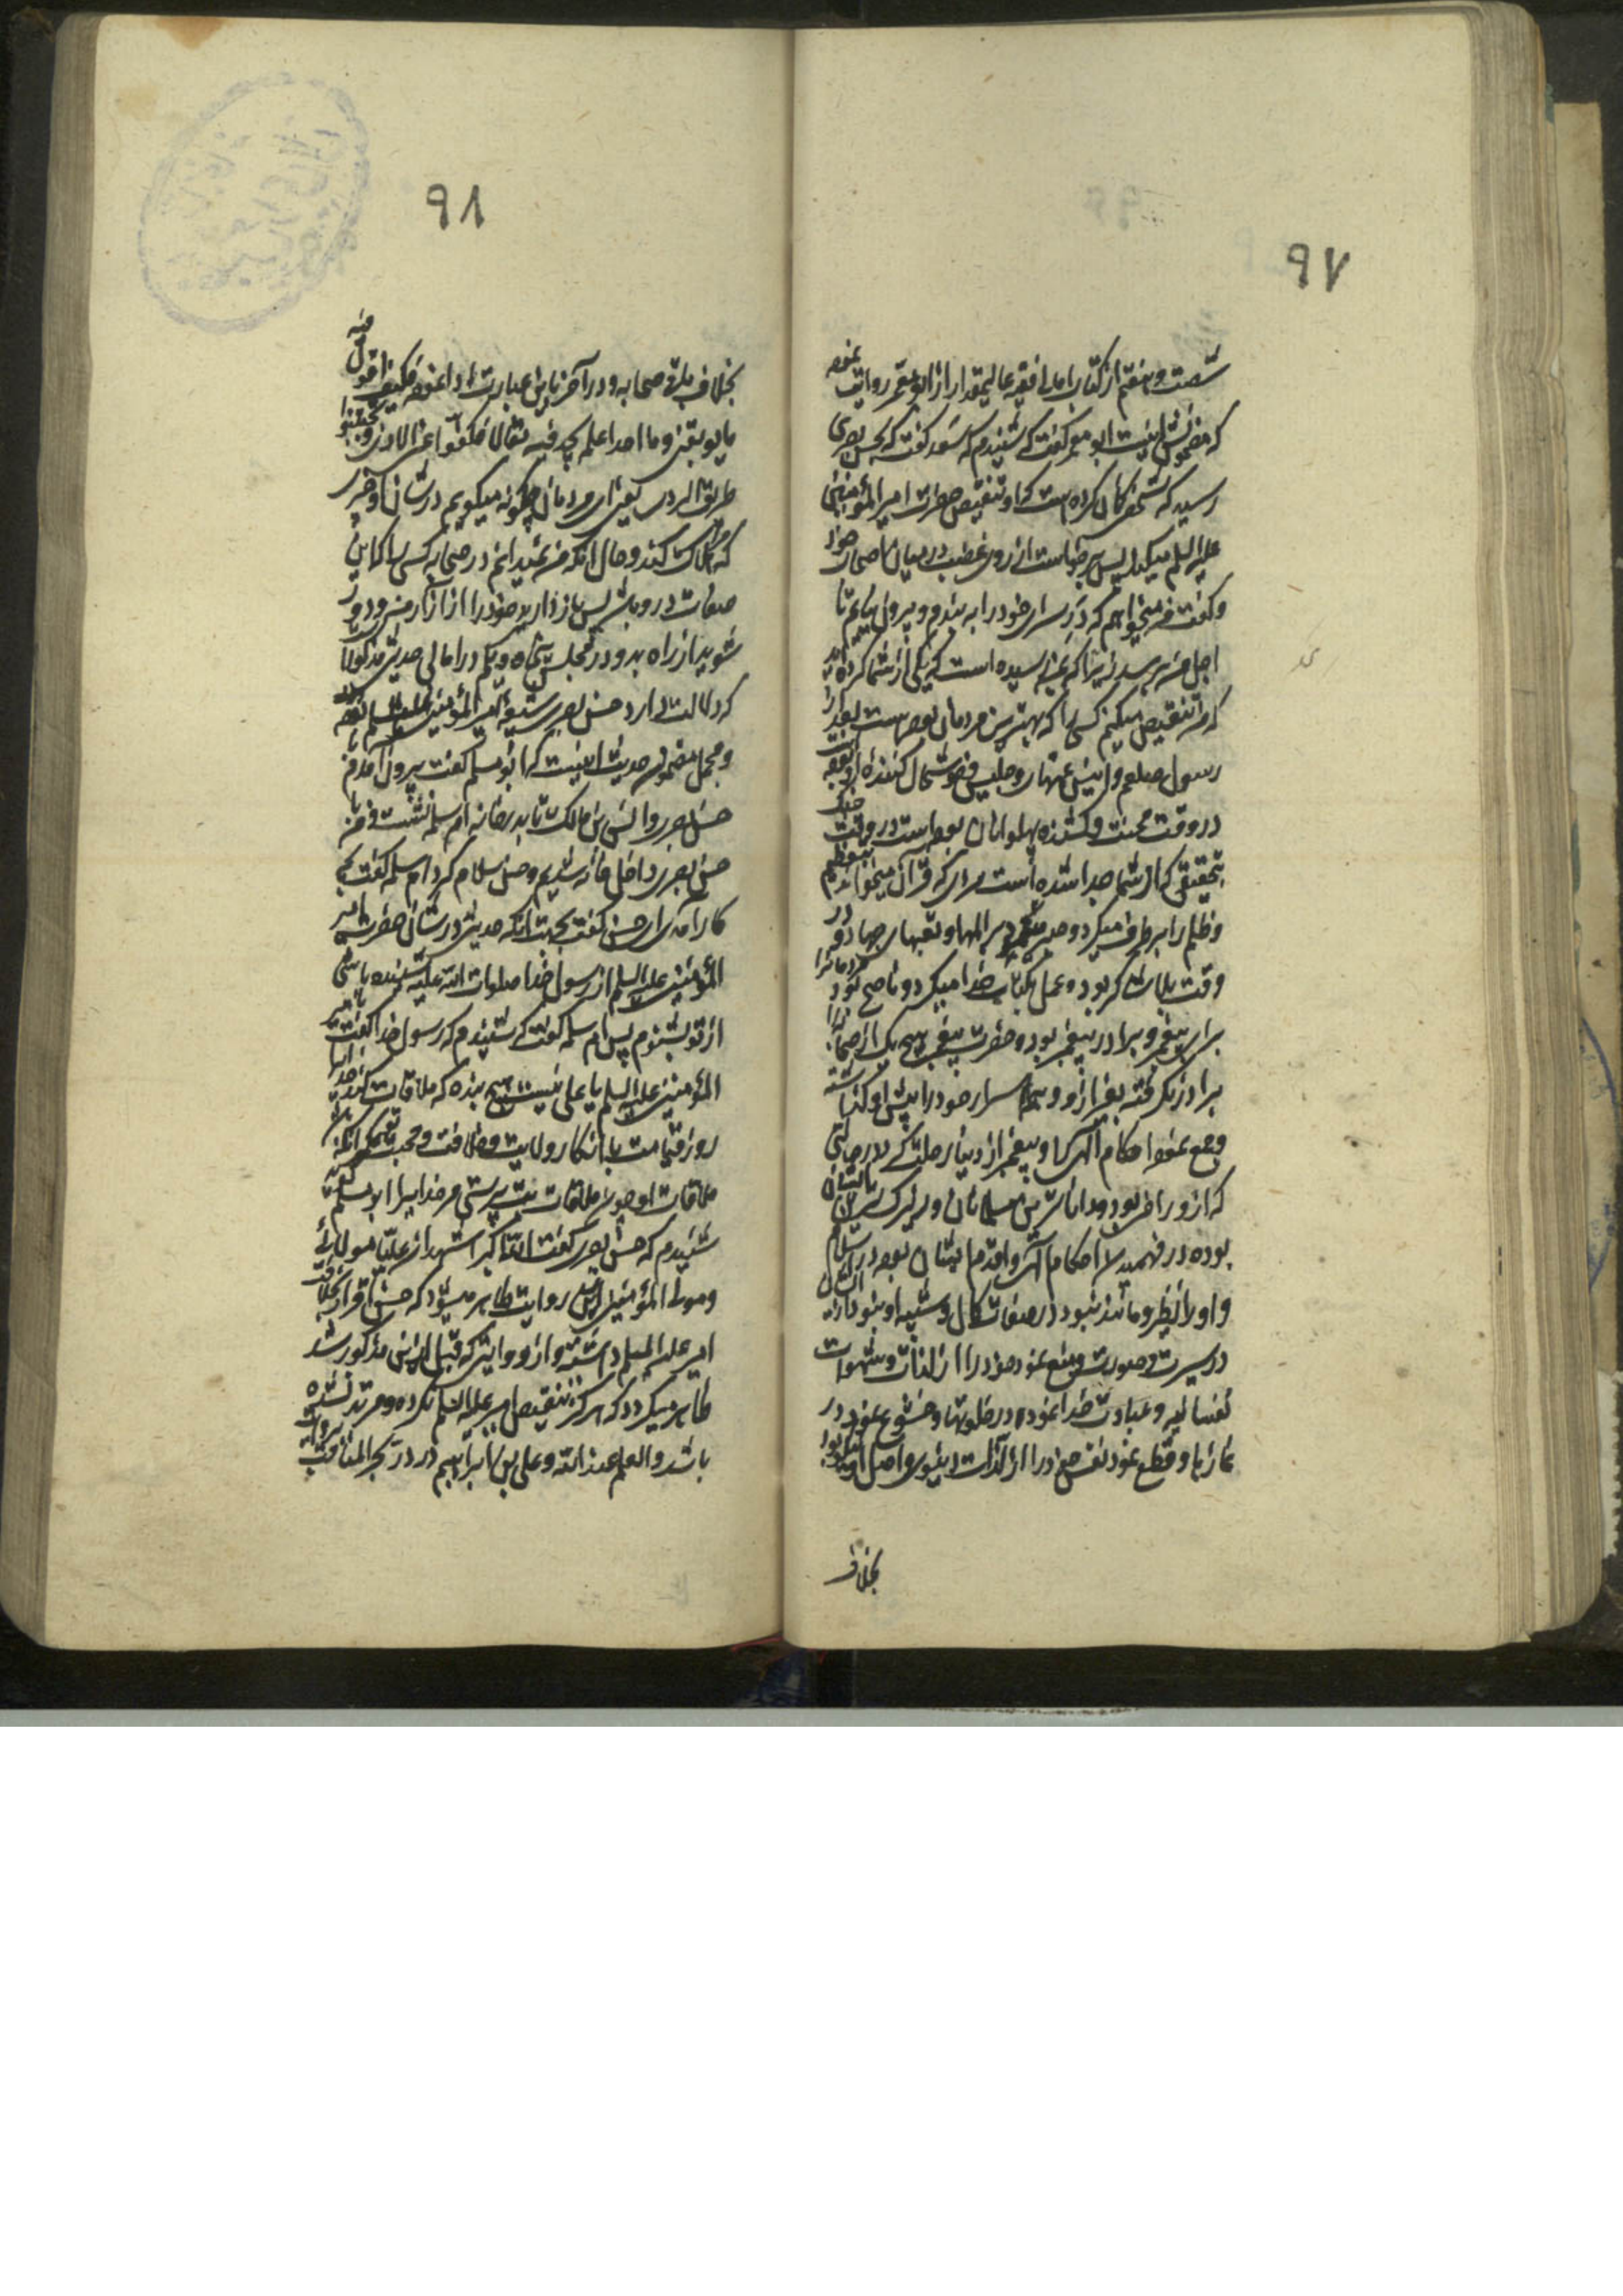 ۹۷
شصت و هفتم از کتاب امالی فقیه عالیمقدار از ابو معمر روایت نموده
که مضمونش اینست ابو معمر گفت که شنیدم که سعد گفت که بحسن بصری
رسید که شخصی گمان کرده است که او تنقیص حضرت امیر المؤمنین
علیه السلم میکند پس برخواست از روی غضب در میان اصحاب خود
و گفت من میخواهم که در سرای خود را به بندم و بیرون نیایم تا
اجل من برسد زیرا که بمن رسیده است که یکی از شما کرده اید
که من تنقیص میکنم کسی را که بهترین مردمان بوده است بعد از
رسول صلعم و انیس و جلیس و خوشحال کننده او بوده
در وقت محنت و کشنده پهلوانان بوده است در وقت جنگ
بتحقیق که از شما جدا شده است مردی که قرآن میخواند بتعظیم
و ظلم را برطرف میکرد و صبر میکرد بر المها و تعبهای جهاد و در
وقت بلا شاکر بوده و عمل بکتاب خدا میکرد و ناصح بود مردمانرا
برای پیغمبر و برادر پیغمبر بوده و حضرت پیغمبر هیچ یک از صحابه را
برادر نگرفته بغیر از او و همه اسرار خود را پیش او گذاشته
و جمع نموده احکام الهی را و پیغمبر از دنیا رحلت کرد در حالتی
که ازو راضی بود و داناترین مسلمانان و زیرکترین ایشان
بوده در فهمیدن احکام الهی و اقدم ایشان بوده در اسلام
و او را نظیر و مانند نبود در صفات کمال و شبیه او نبود
در سیرت و صورت و منع نمود خود را از لذات و شهوات
نفسانیه و عبادت خدا نموده در خلوتها و خشوع نمود در
نمازها و قطع نمود نفس خود را از لذات دنیوی و اصل
بخلاف
۹۸
بخلاف باقی صحابه و در آخر باین عبارت ادا نموده فکیف اقول فیه
ما یوبقنی و ما احدا علم یجد فیه مقالا فکفوا عن الاذی و تجنبوا
طریق الردی یعنی ای مردمان چگونه میگویم در شان او چیزی
که مرا هلاک کند و حال آنکه من نمیدانم در صحابه کسی را که این
صفات در او باشد پس باز دارید خود را از آزار من و دور
شوید از راه بد و در مجلس پنجاه و یکم در امالی حدیثی مذکور است
که دلالت دارد حسن بصری شیعه امیر المؤمنین علیه السلم بوده
و مجمل مضمون حدیث اینست که ابو مسلم گفت بیرون آمدم با
حسن بصری و انس بن مالک تا بدر خانه ام سلمه نشست و من با
حسن بصری داخل خانه شدیم و حسن سلام کرد ام سلمه گفت بچه
کار آمدی حسن گفت بجهت آنکه حدیثی در شان حضرت امیر
المؤمنین علیه السلم از رسول خدا صلوات الله علیه شنیده باشی
از تو بشنوم پس ام سلمه گفت که شنیدم که رسول خدا گفت با امیر
المؤمنین علیه السلم یا علی نیست هیچ بنده که ملاقات کند خدا را
روز قیامت با انکار ولایت و خلافت و محبت تو مگر آنکه
ملاقات او چون ملاقات بت پرستی مر خدا را ابو مسلم گوید
شنیدم که حسن بصری گفت الله اکبر اشهد ان علیا مولائی
و مولی المؤمنین ازین روایت ظاهر میشود که حسن اقرار بخلافت
امیر علیه السلم داشته و از روایتی که قبل ازین مذکور شد
ظاهر میگردد که هرگز تنقیص امیر علیه السلم نکرده و مرتد نشده
باشد و العلم عند الله و علی بن ابراهیم در بحر المناقب